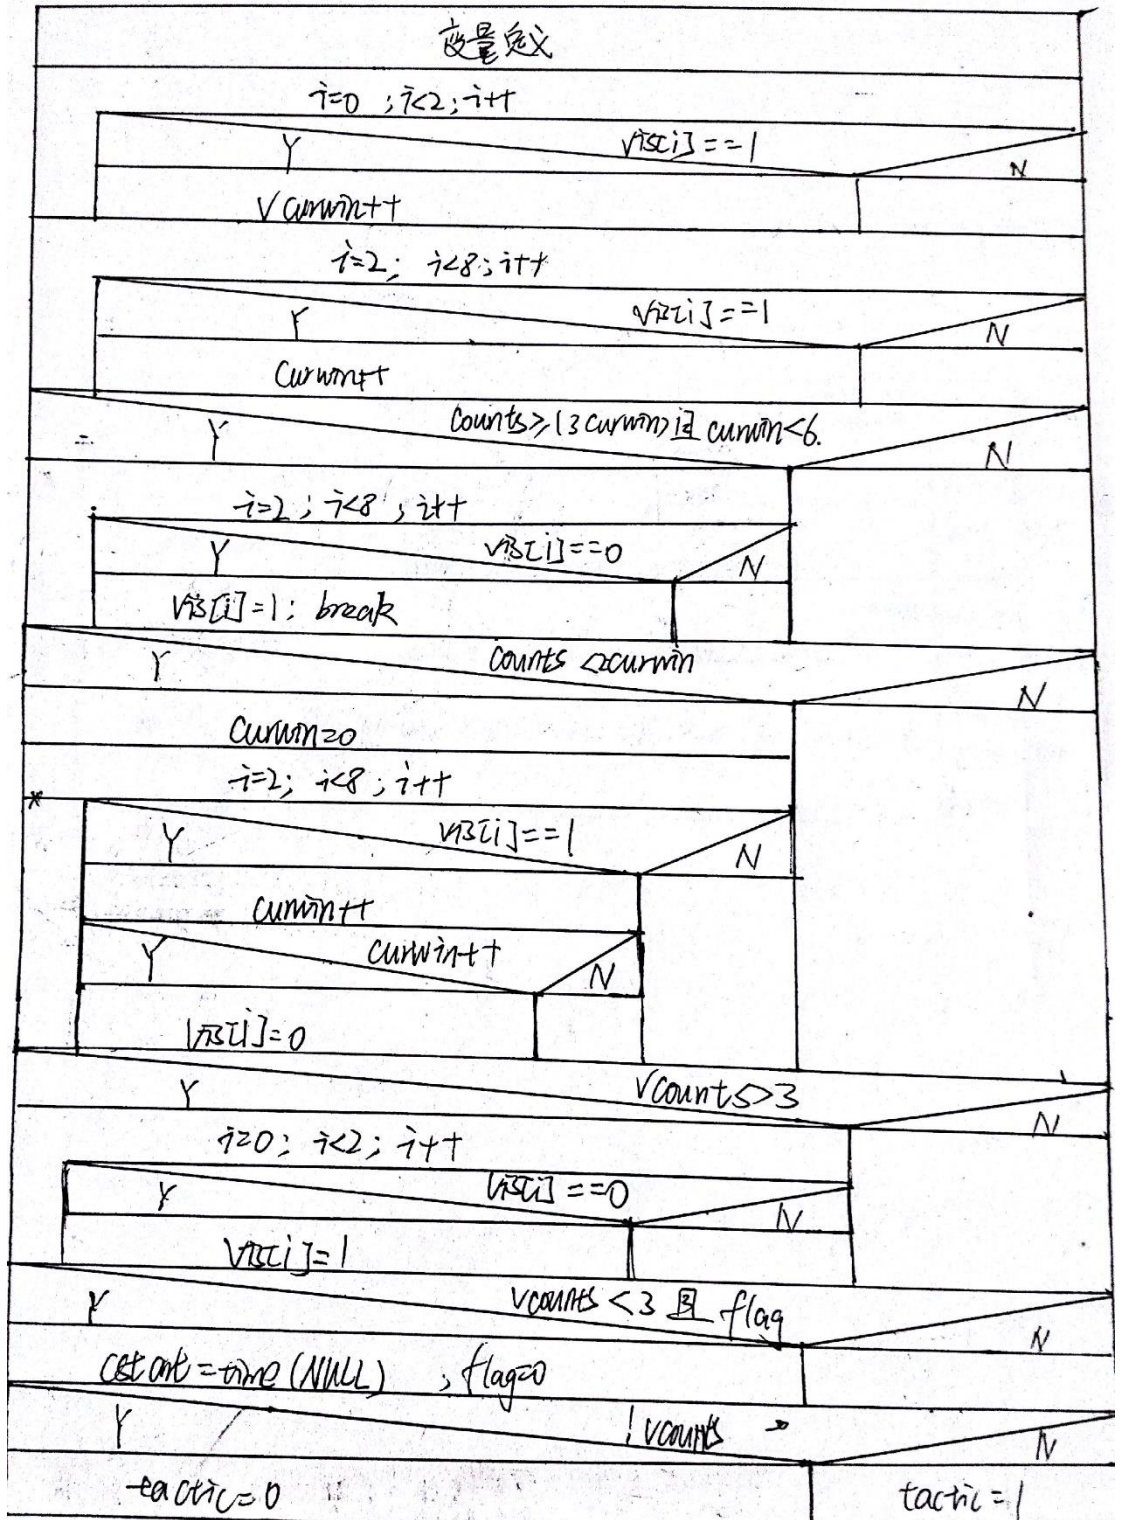 变量定义
i=0 ; i<2; i++
vis[i]==1
Y
N
Vcurwin++
i=2; i<8; i++
vis[i]==1
Y
N
Curwin++
Counts≥(3curwin)且curwin<6.
Y
N
i=2; i<8; i++
vis[i]==0
Y
N
vis[i]=1; break
Counts <2curwin
Y
N
Curwin=0
i=2; i<8; i++
vis[i]==1
Y
N
curwin++
curwin++
Y
N
Vis[i]=0
Vcounts>3
Y
N
i=0; i<2; i++
Vis[i]==0
Y
N
Vis[i]=1
Vcounts<3 且 flag
Y
N
=time(NULL) ; flag=0
!vcounts
Y
N
tactic=0
tactic=1